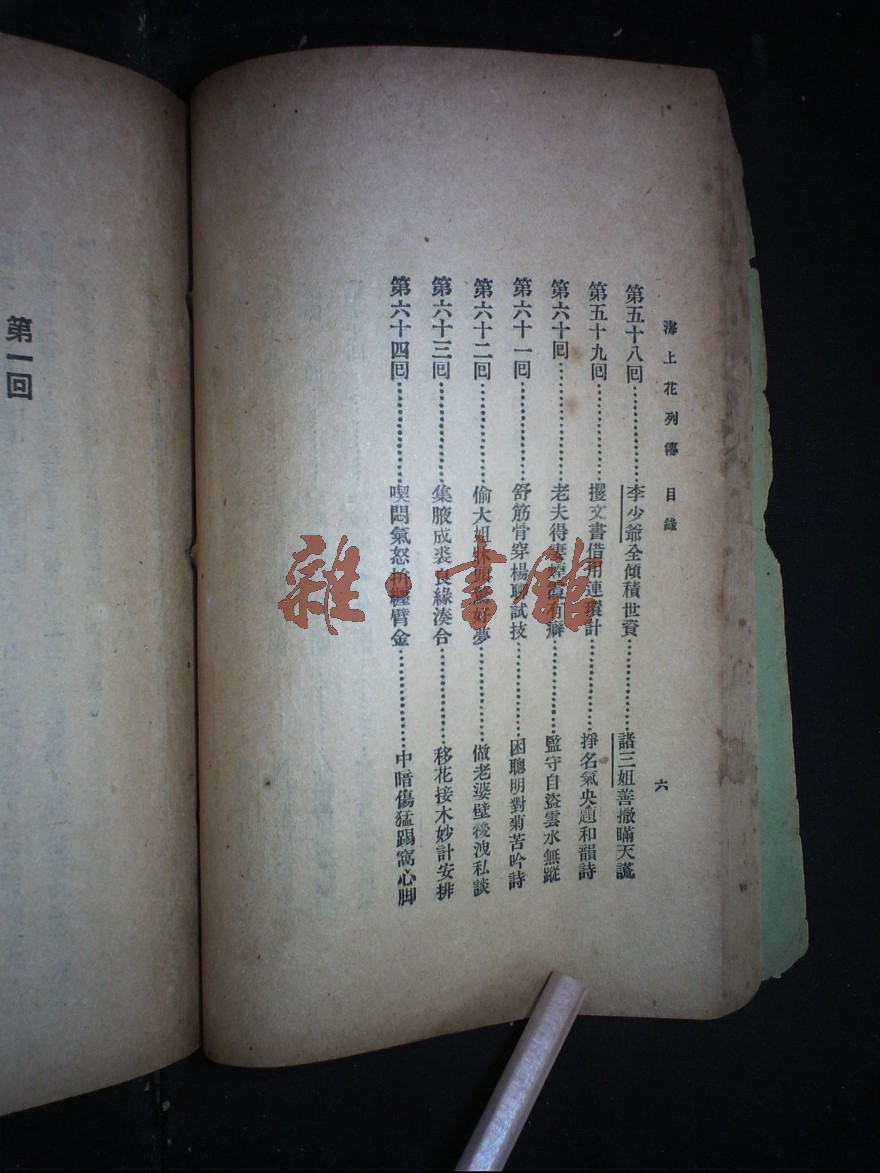 海上花列傳　目錄
六
第五十八回……李少爺全傾積世資……諸三姐善撒瞞天謊
第五十九回……攫文書借用連環計……掙名氣央題和韻詩
第六十回……老夫得妻煙霞有癖……監守自盜雲水無蹤
第六十一回……舒筋骨穿楊聊試技……困聰明對菊苦吟詩
第六十二回……偷大姐牀頭驚好夢……做老婆壁後洩私談
第六十三回……集腋成裘良緣湊合……移花接木妙計安排
第六十四回……喫悶氣怒拚纏臂金……中暗傷猛踢窩心脚
第一回
雜·書館